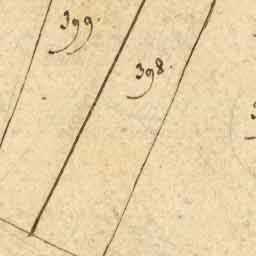 399.
398.